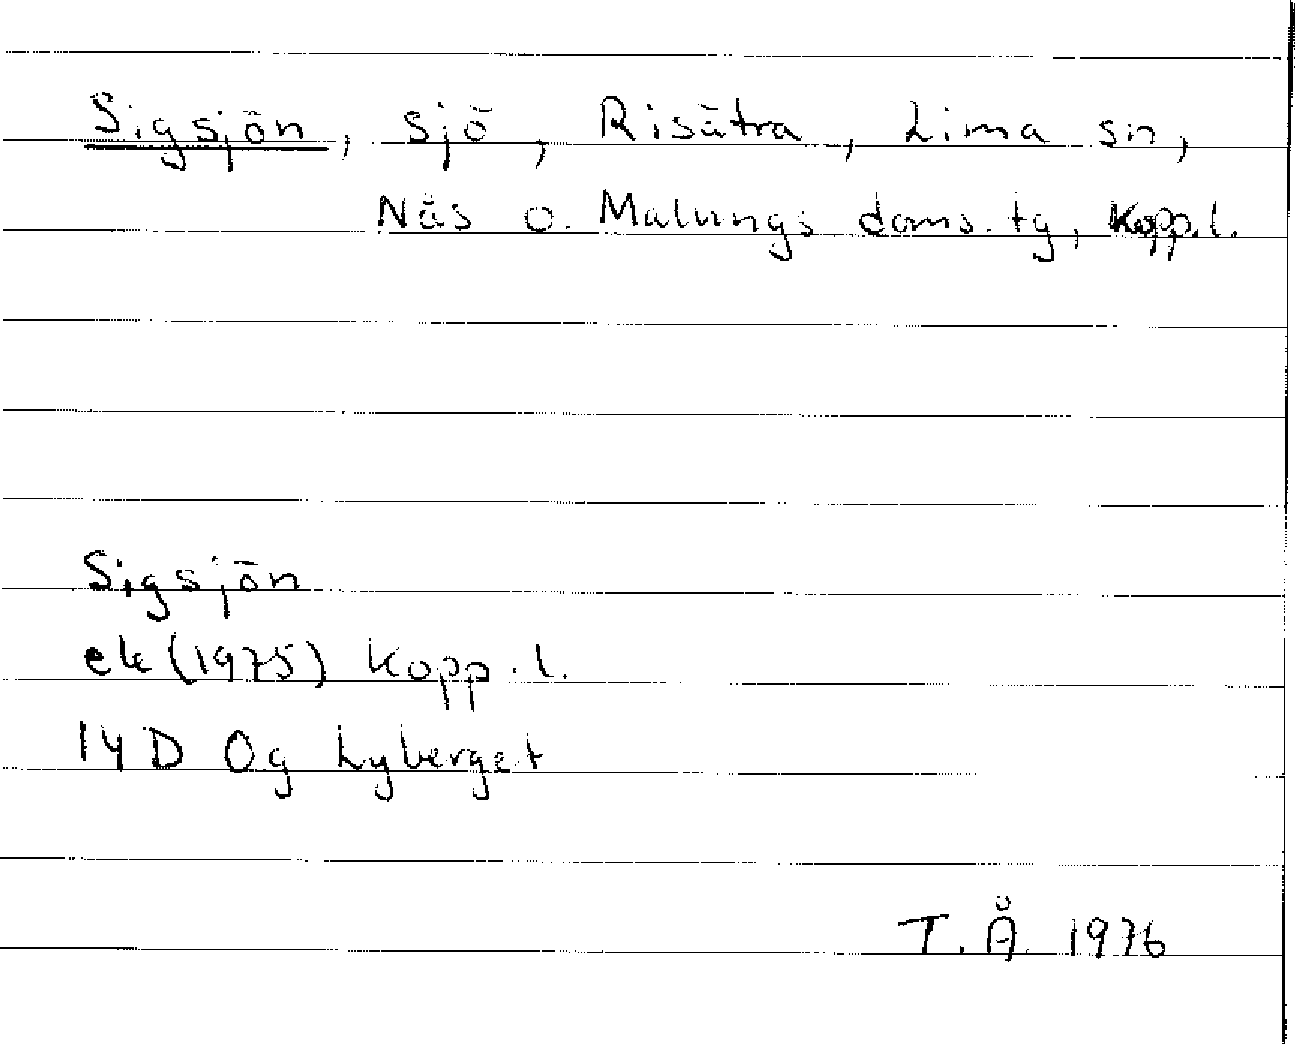 Sigsjön, sjö, Risätra, Lima sn,
Näs o. Malungs doms. tg, Kopp.l.
Sigsjön
ek (1975) Kopp.l.
14 D 0g Lyberget
T.Å. 1976